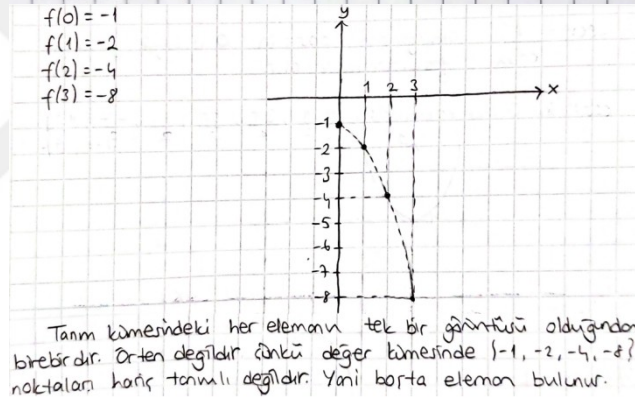 f(0) = -1
f(1) = -2
f(2) = -4
f(3) = -8
y
1 2 3
x
-1
-2
-3
-4
-5
-6
-7
-8
Tanım kümesindeki her elemanın tek bir görüntüsü olduğundan
birebirdir. Örten değildir çünkü değer kümesinde {-1, -2, -4, -8}
noktaları hariç tanımlı değildir. Yani boşta eleman bulunur.